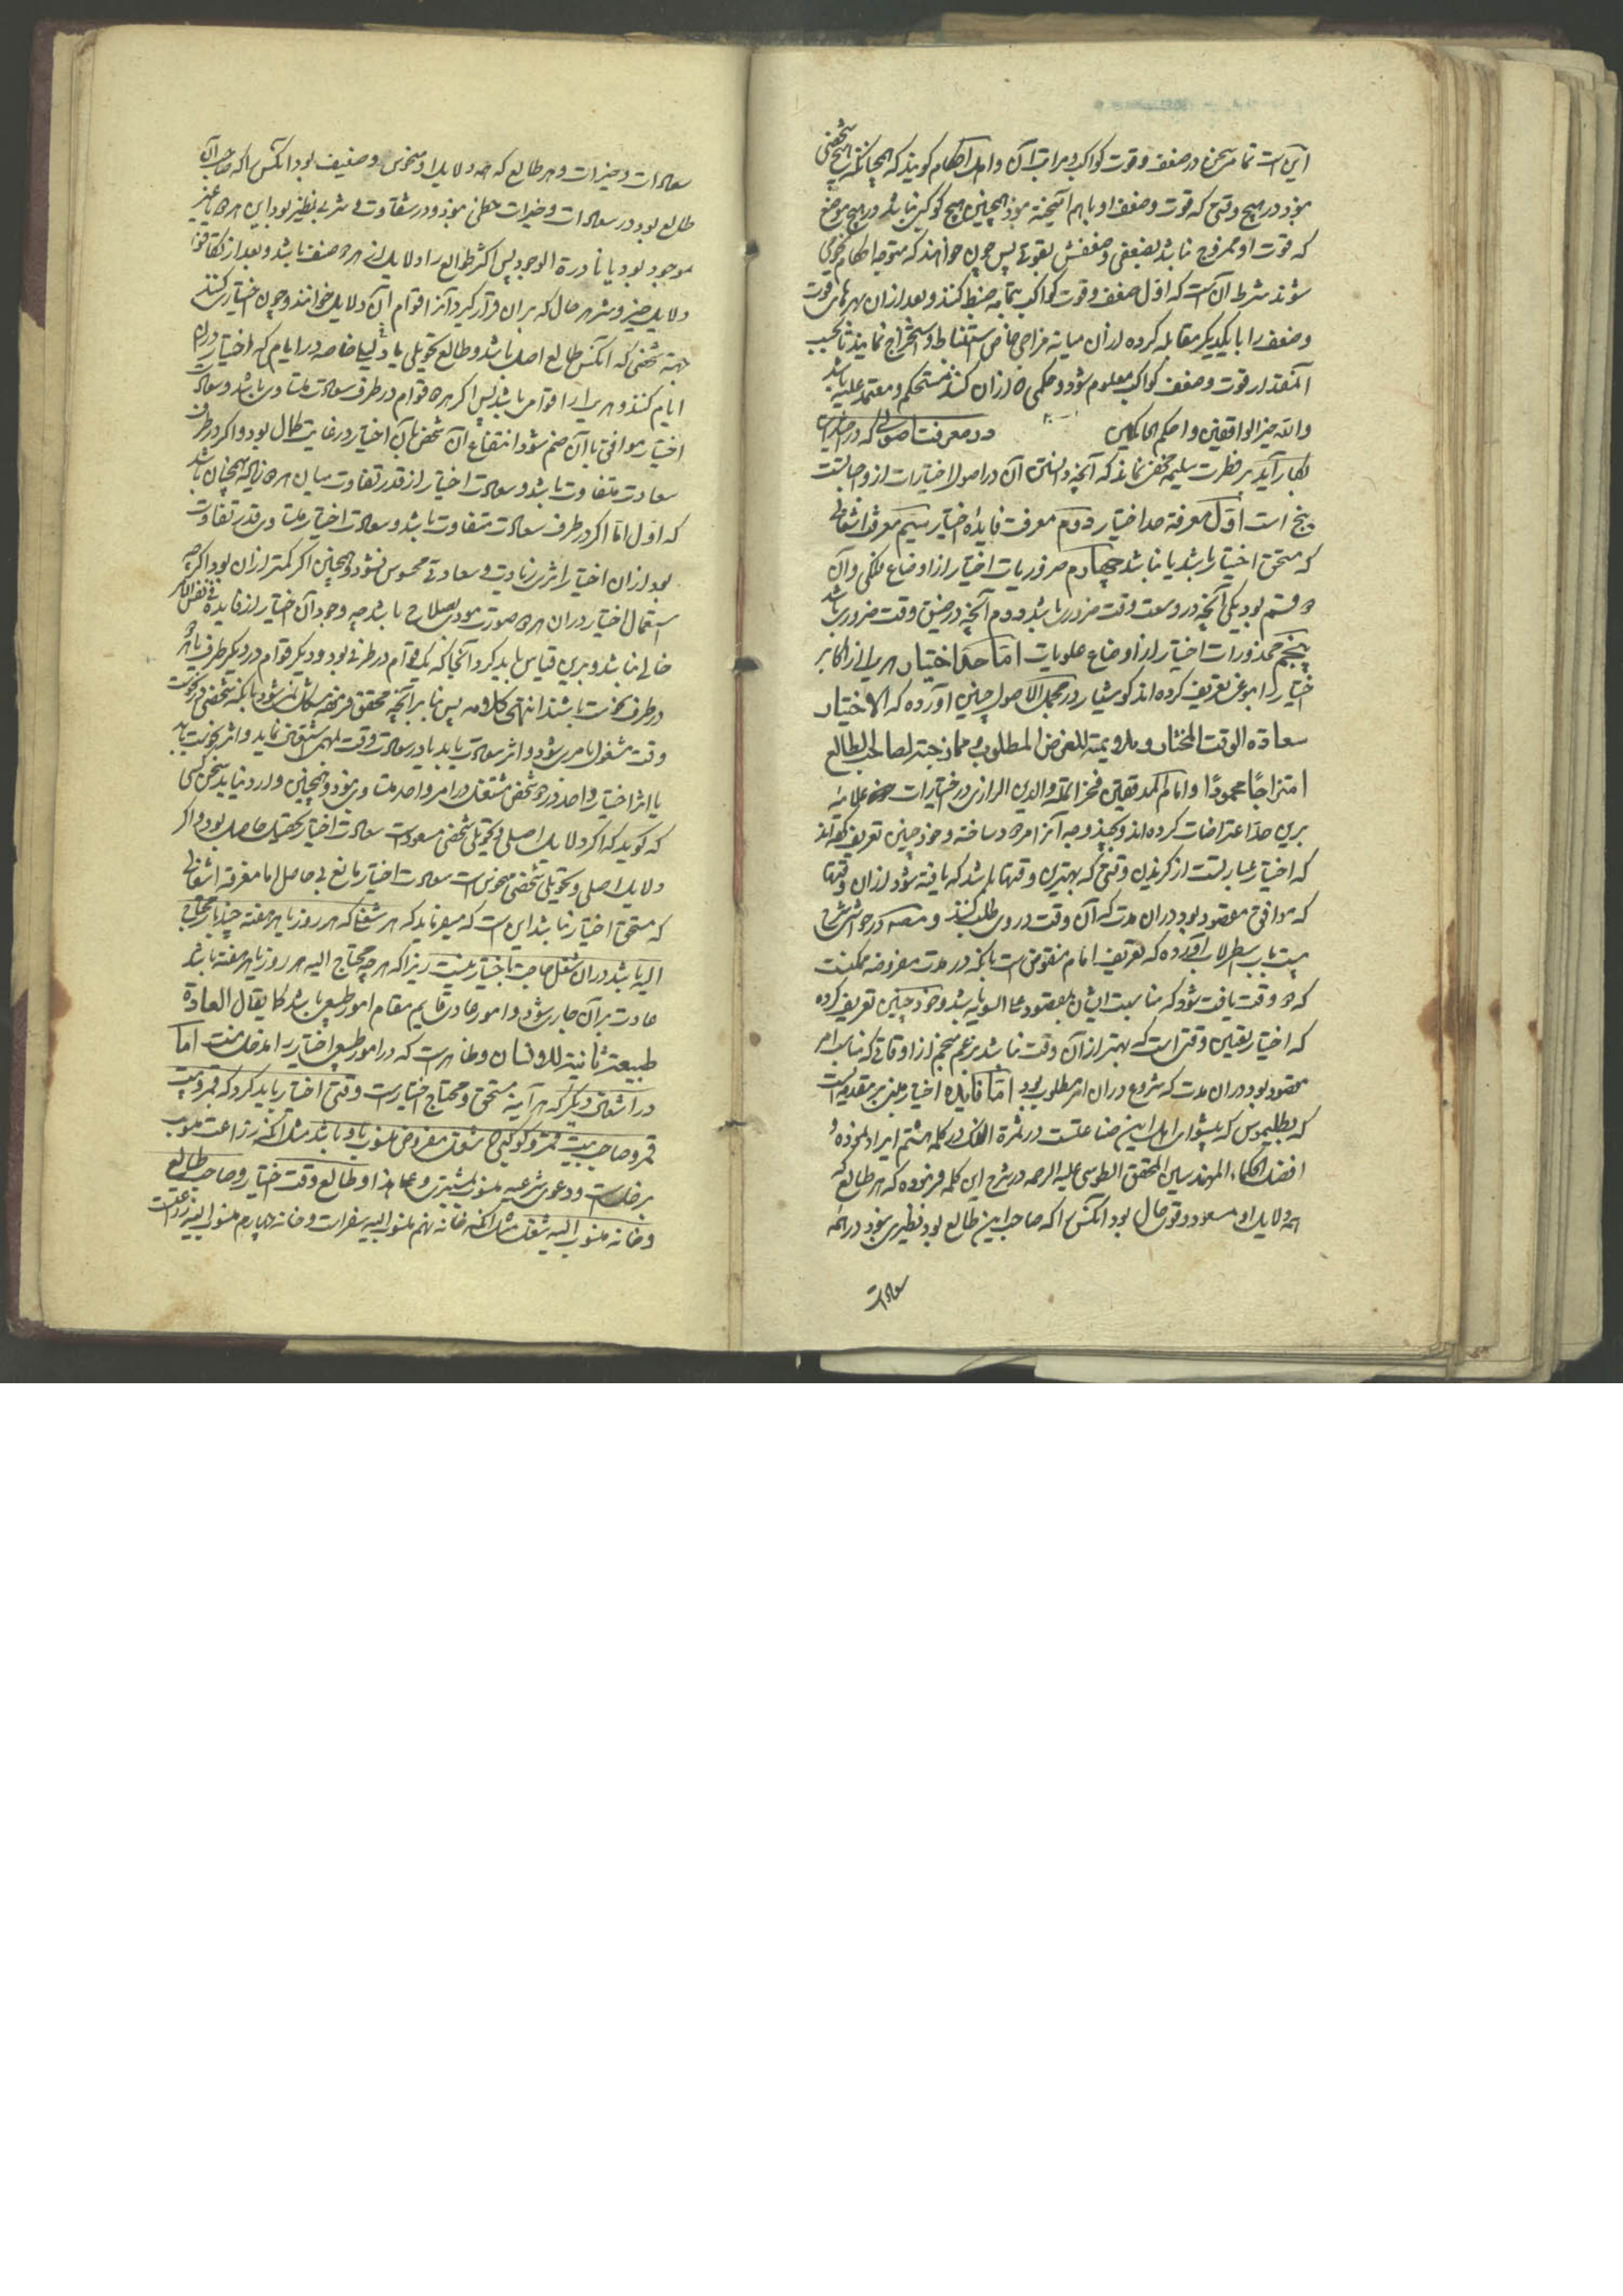 این است تمام سخن در ضعف و قوت کواکب و مراتب آن و اهل احکام گویند که همچنانکه هیچ شخصی
نبود در هیچ وقتی که قوت و ضعف او باهم آمیخته نبود همچنین هیچ کوکبی نباشد در هیچ موضع
که قوت او ممزوج نباشد بضعفی و ضعفش بقوتی پس چون خواهند که متوجه احکام نجومی
شوند شرط آن است که اول ضعف و قوت کواکب بتمامه ضبط کنند و بعد از آن بهرهای قوت
و ضعف را با یکدیگر مقابله کرده از آن میانه مزاجی خاص استنباط و استخراج نمایند تا بحسب
آنمقدار قوت و ضعف کواکب معلوم شود و حکمی که از آن کنند مستحکم و معتمد علیه باشد
والله خیر الواقفین و احکم الحاکمین در معرفت اصولی که در اختیارات
بکار آید بر فطرت سلیمه مخفی نماند که آنچه دانستن آن در اصول اختیارات از واجباتست
پنج است اول معرفة حد اختیار دوم معرفت فایدهٔ اختیار سیم معرفة اشغالی
که مستحق اختیار باشد یا نباشد چهارم ضروریات اختیار از اوضاع فلکی و آن
دو قسم بود یکی آنچه در وسعت وقت ضروری باشد و دوم آنچه در ضیق وقت ضروری باشد
پنجم محذورات اختیار از اوضاع علویات اما حد اختیار هر یک از اکابر
اختیار را بنوعی تعریف کرده اند کوشیار در مجمل الاصول چنین آورده که الاختیار
سعادة الوقت المختار و ملایمته للغرض المطلوب و ممازجته لصاحب الطالع
امتزاجا محمودا و امام المدققین فخر الملة والدین الرازی در اختیارات علائیه
برین حد اعتراضات کرده اند و بچند وجه آنرا مردود ساخته و خود چنین تعریف کرده اند
که اختیار عبارتست از گزیدن وقتی که بهترین وقتها باشد که یافته شود از آن وقتها
که موافق مقصود بود در آن مدت که آن وقت در وی طلب کنند و در حواشی شرح
بیست باب اسطرلاب آورده که تعریف امام منقوض است بانکه در مدت مفروضه ممکنست
که دو وقت یافت شود که مناسبت ایشان بمقصود علی السویه باشد و خود چنین تعریف کرده
که اختیار تعیین وقتی است که بهتر از آن وقت نباشد بزعم منجم از اوقاتی که مناسب امر
مقصود بود در آن مدت که شروع در آن امر مطلوب بود اما فایده اختیار مبنی بر مقدمه ایست
که بطلیموس که پیشوای اهل این صناعتست در ثمرة الفلک در کلمه هشتم ایراد نموده و
افضل الحکماء المهندسین المحقق الطوسی علیه الرحمه در شرح این کلمه فرموده که هر طالع که
همه دلایل او مسعود و قوی حال بود آنکس را که صاحب این طالع بود نظیری نبود در همه
سعادات
سعادات و خیرات و هر طالع که همه دلایل او منحوس و ضعیف بود آنکس را که صاحب آن
طالع بود در سعادات و خیرات حظی نبود و در شقاوت و شر بی نظیر بود این هر دو یا غیر
موجود بود یا نادرة الوجود پس اکثر طوالع را دلایل از هر دو صنف باشد و بعد از تکافؤ
دلایل خیر و شر هر حال که بر آن قرار گیرد آنرا قوام آن دلایل خوانند و چون اختیار کنند
جهة شخصی که آنکس را طالع اصل باشد و طالع تحویلی یا دلیلها خاصه در ایامی که اختیار در آن
ایام کنند و هر یکی را قوامی باشد پس اگر هر دو قوام در طرف سعادت متساوی باشد و سعادت
اختیار موافق با آن ضم شود انتفاع آن شخص بآن اختیار در غایت کمال بود و اگر در طرف
سعادت متفاوت باشد و سعادت اختیار از قدر تفاوت میان هر دو زیاده همچنان باشد
که اول اما اگر در طرف سعادت متفاوت باشد و سعادت اختیار متساوی قدر تفاوت
بود از آن اختیار اثری زیادتی و سعادتی محسوس نشود و همچنین اگر کمتر از آن بود اگر چه
استعمال اختیار در آن هر دو صورت مودی بصلاح باشد چه وجود آن اختیار از فایده فی نفس الامر
خالی نباشد و برین قیاس باید کرد آنجا که یک قوام در طرفی بود و دیگر قوام در دیگر طرف یا هر دو
در طرف نحوست باشند انتهی کلامه پس بنا بر آنچه محقق فرموده مشکل نشود بانکه شخصی در نحوست
وقت مشغول بامری شود و اثر سعادت یابد یا در سعادت وقت بمهمی اشتغال نماید و اثر نحوست یابد
یا اثر اختیار واحد در دو شخص مشتغل در امر واحد متساوی نبود و همچنین وارد نیاید سخن کسی
که گوید که اگر دلایل اصلی و تحویلی شخصی مسعود است سعادت اختیار تحصیل حاصل بود و اگر
دلایل اصلی و تحویلی شخصی منحوس است سعادت اختیار مانع بی حاصل اما معرفة اشغالی
که مستحق اختیار نباشد این است که میفرماید که هر شغلی که هر روز یا هر هفته چند بار محتاج
الیه باشد در آن شغل حاجت باختیار نیست زیرا که هر چه محتاج الیه هر روز یا هر هفته باشد
عادت بر آن جاری شود و امور عادی قایم مقام امور طبیعی باشد کما یقال العادة
طبیعة ثانیة للانسان و ظاهر است که در امور طبیعی اختیار را مدخل نیست اما
در اشغال دیگر که هر آینه مستحق و محتاج اختیار است وقتی اختیار باید کرد که قمر و بیت
قمر و صاحب بیت قمر و کوکبی که شغل مفروض منسوب باو باشد مثل آنکه زراعت منسوب
بزحلست و دعوی شرعیه منسوب بمشتری و علی هذا و طالع وقت اختیار و صاحب طالع
و خانه منسوب الیه شغل مثل آنکه خانه نهم منسوب الیه سفرات و خانه چهارم منسوب الیه زراعت